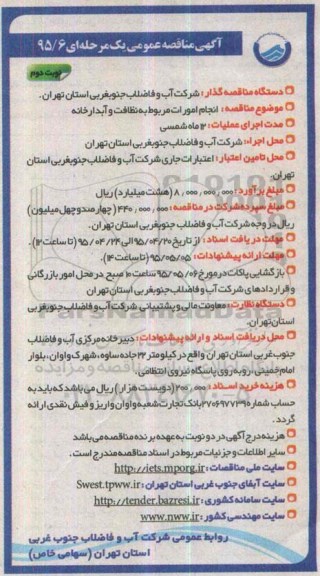 آگهی مناقصه عمومی یک مرحله ای ۹۵/۶
نوبت دوم
دستگاه مناقصه گذار: شرکت آب و فاضلاب جنوبغربی استان تهران.
موضوع مناقصه: انجام امورات مربوط به نظافت و آبدارخانه
مدت اجرای عملیات: ۱۲ ماه شمسی
محل اجراء: شرکت آب و فاضلاب جنوبغربی استان تهران
محل تامین اعتبار: اعتبارات جاری شرکت آب و فاضلاب جنوبغربی استان
تهران.
مبلغ برآورد: ۸,۰۰۰,۰۰۰,۰۰۰ (هشت میلیارد) ریال
مبلغ سپرده شرکت در مناقصه: ۴۴۰,۰۰۰,۰۰۰ (چهارصد و چهل میلیون)
ریال در وجه شرکت آب و فاضلاب جنوبغربی استان تهران
مهلت دریافت اسناد: از تاریخ ۹۵/۰۴/۲۰ الی ۹۵/۰۴/۲۴ (تا ساعت ۱۴).
مهلت ارائه پیشنهادات: ۹۵/۰۵/۰۵ (تا ساعت ۱۴).
بازگشایی پاکات: در مورخ ۹۵/۰۵/۰۶ ساعت ۱۰ صبح در محل امور بازرگانی
و قراردادهای شرکت آب و فاضلاب جنوبغربی استان تهران
دستگاه نظارت: معاونت مالی و پشتیبانی شرکت آب و فاضلاب جنوبغربی
استان تهران.
محل دریافت اسناد و ارائه پیشنهادات: دبیرخانه مرکزی آب و فاضلاب
جنوب غربی استان تهران واقع در کیلومتر ۲۳ جاده ساوه، شهرک واوان، بلوار
امام خمینی، روبه روی پاسگاه نیروی انتظامی.
هزینه خرید اسناد: ۲۰۰,۰۰۰ (دویست هزار) ریال می باشد که باید به
حساب شماره ۲۷۰۶۹۷۷۳۹ بانک تجارت شعبه واوان واریز و فیش نقدی ارائه
گردد.
هزینه درج آگهی در دو نوبت به عهده برنده مناقصه می باشد
سایر اطلاعات و جزئیات مربوط در اسناد مناقصه مندرج است.
سایت ملی مناقصات: http://iets.mporg.ir
سایت آبفای جنوب غربی استان تهران: Swest.tpww.ir
سایت سامانه کشوری: http://tender.bazresi.ir
سایت مهندسی کشور: www.nww.ir
روابط عمومی شرکت آب و فاضلاب جنوب غربی
استان تهران (سهامی خاص)